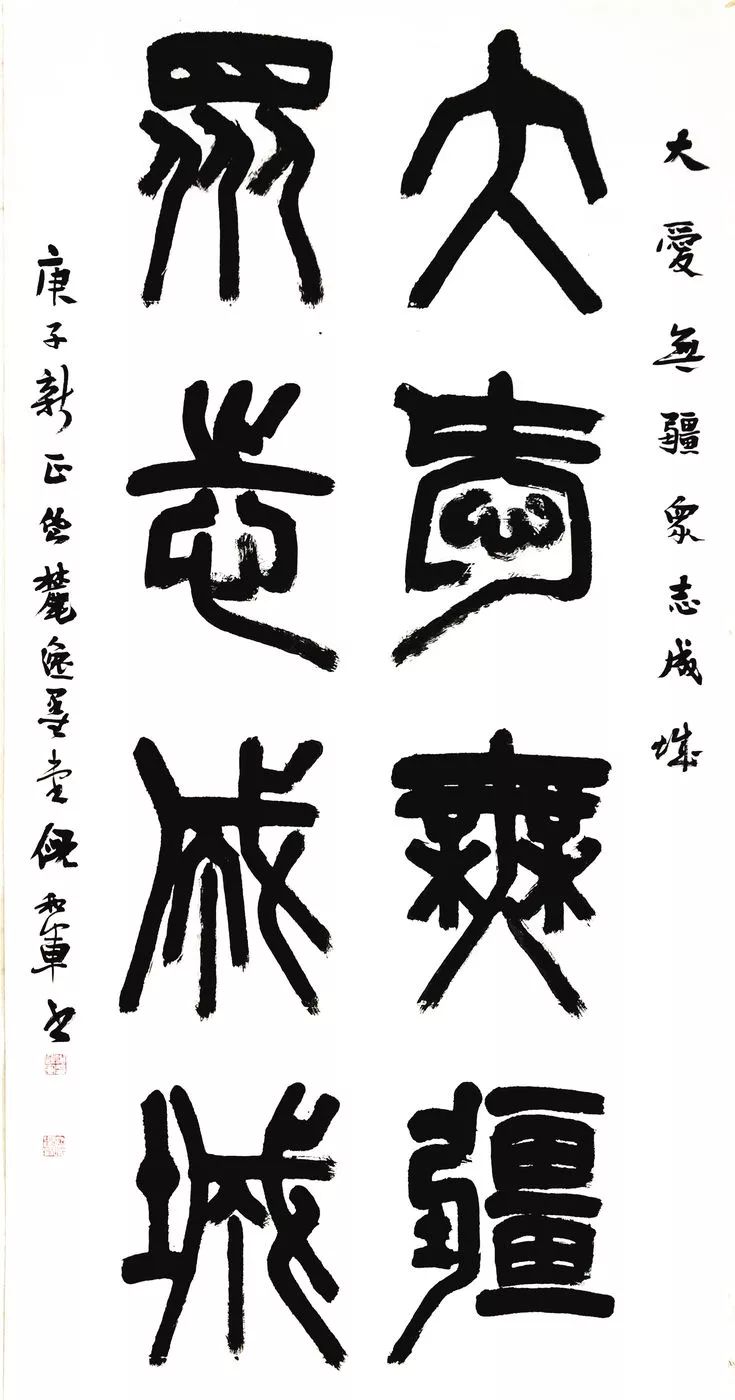 大愛無疆衆志成城
大愛無疆
眾志成城
庚子新正岱麓逸墨堂倪和軍书